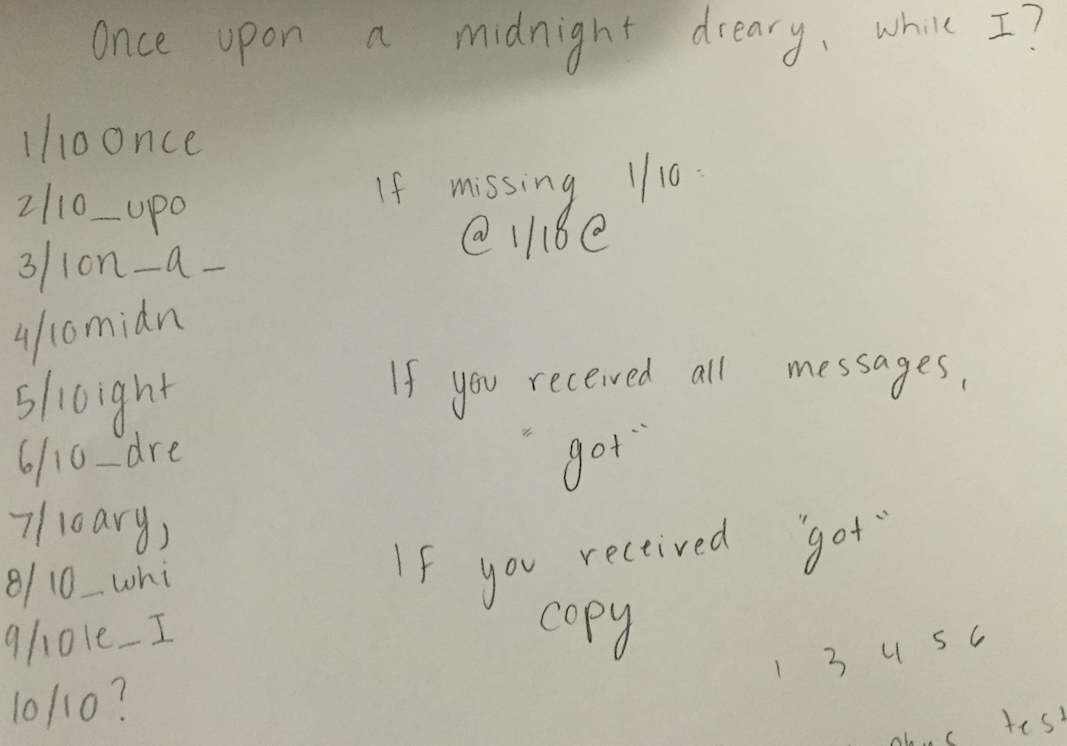 Once upon a midnight dreary, while I?
1/10 Once
2/10_upo
3/10n_a_
4/10midn
5/10ight
6/10_dre
7/10ary,
8/10_whi
9/10le_I
10/10?
If missing 1/10:
@ 1/10 @
If you received all messages,
"got"
If you received "got"
copy
1 3 4 5 6
test